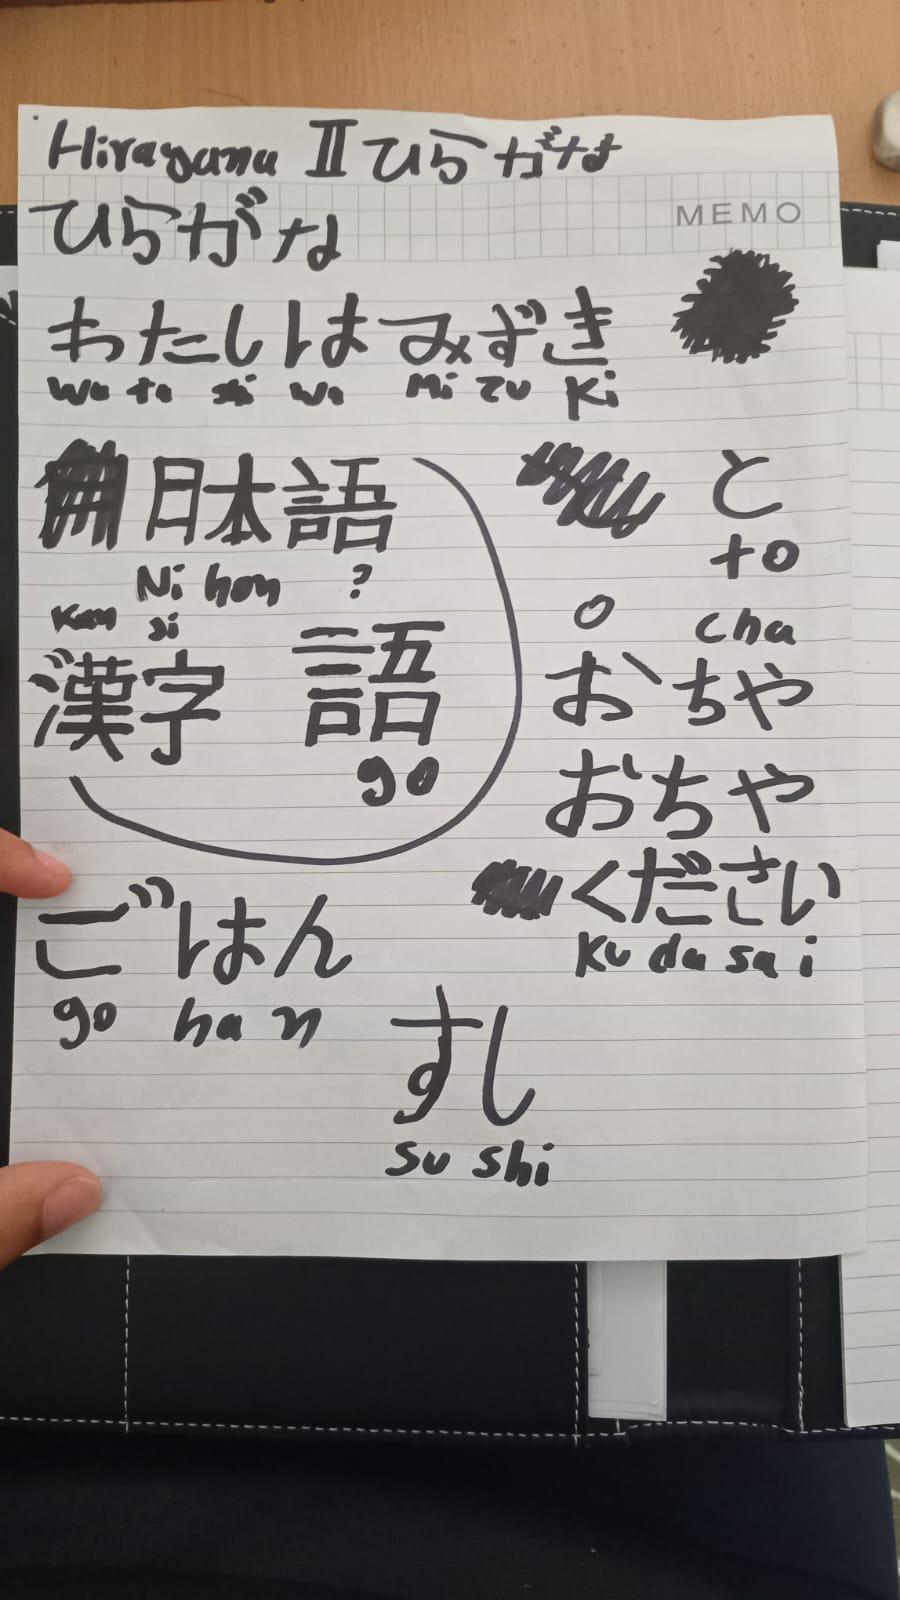 Hiragana II ひらがな
ひらがな
MEMO
わたしはみずき
wa ta si wa Mi zu ki
日本語
Ni hon ?
Kan zi
漢字 語
go
と
to
o cha
おちゃ
おちゃ
ください
ku da sa i
ごはん
go ha n
すし
su shi